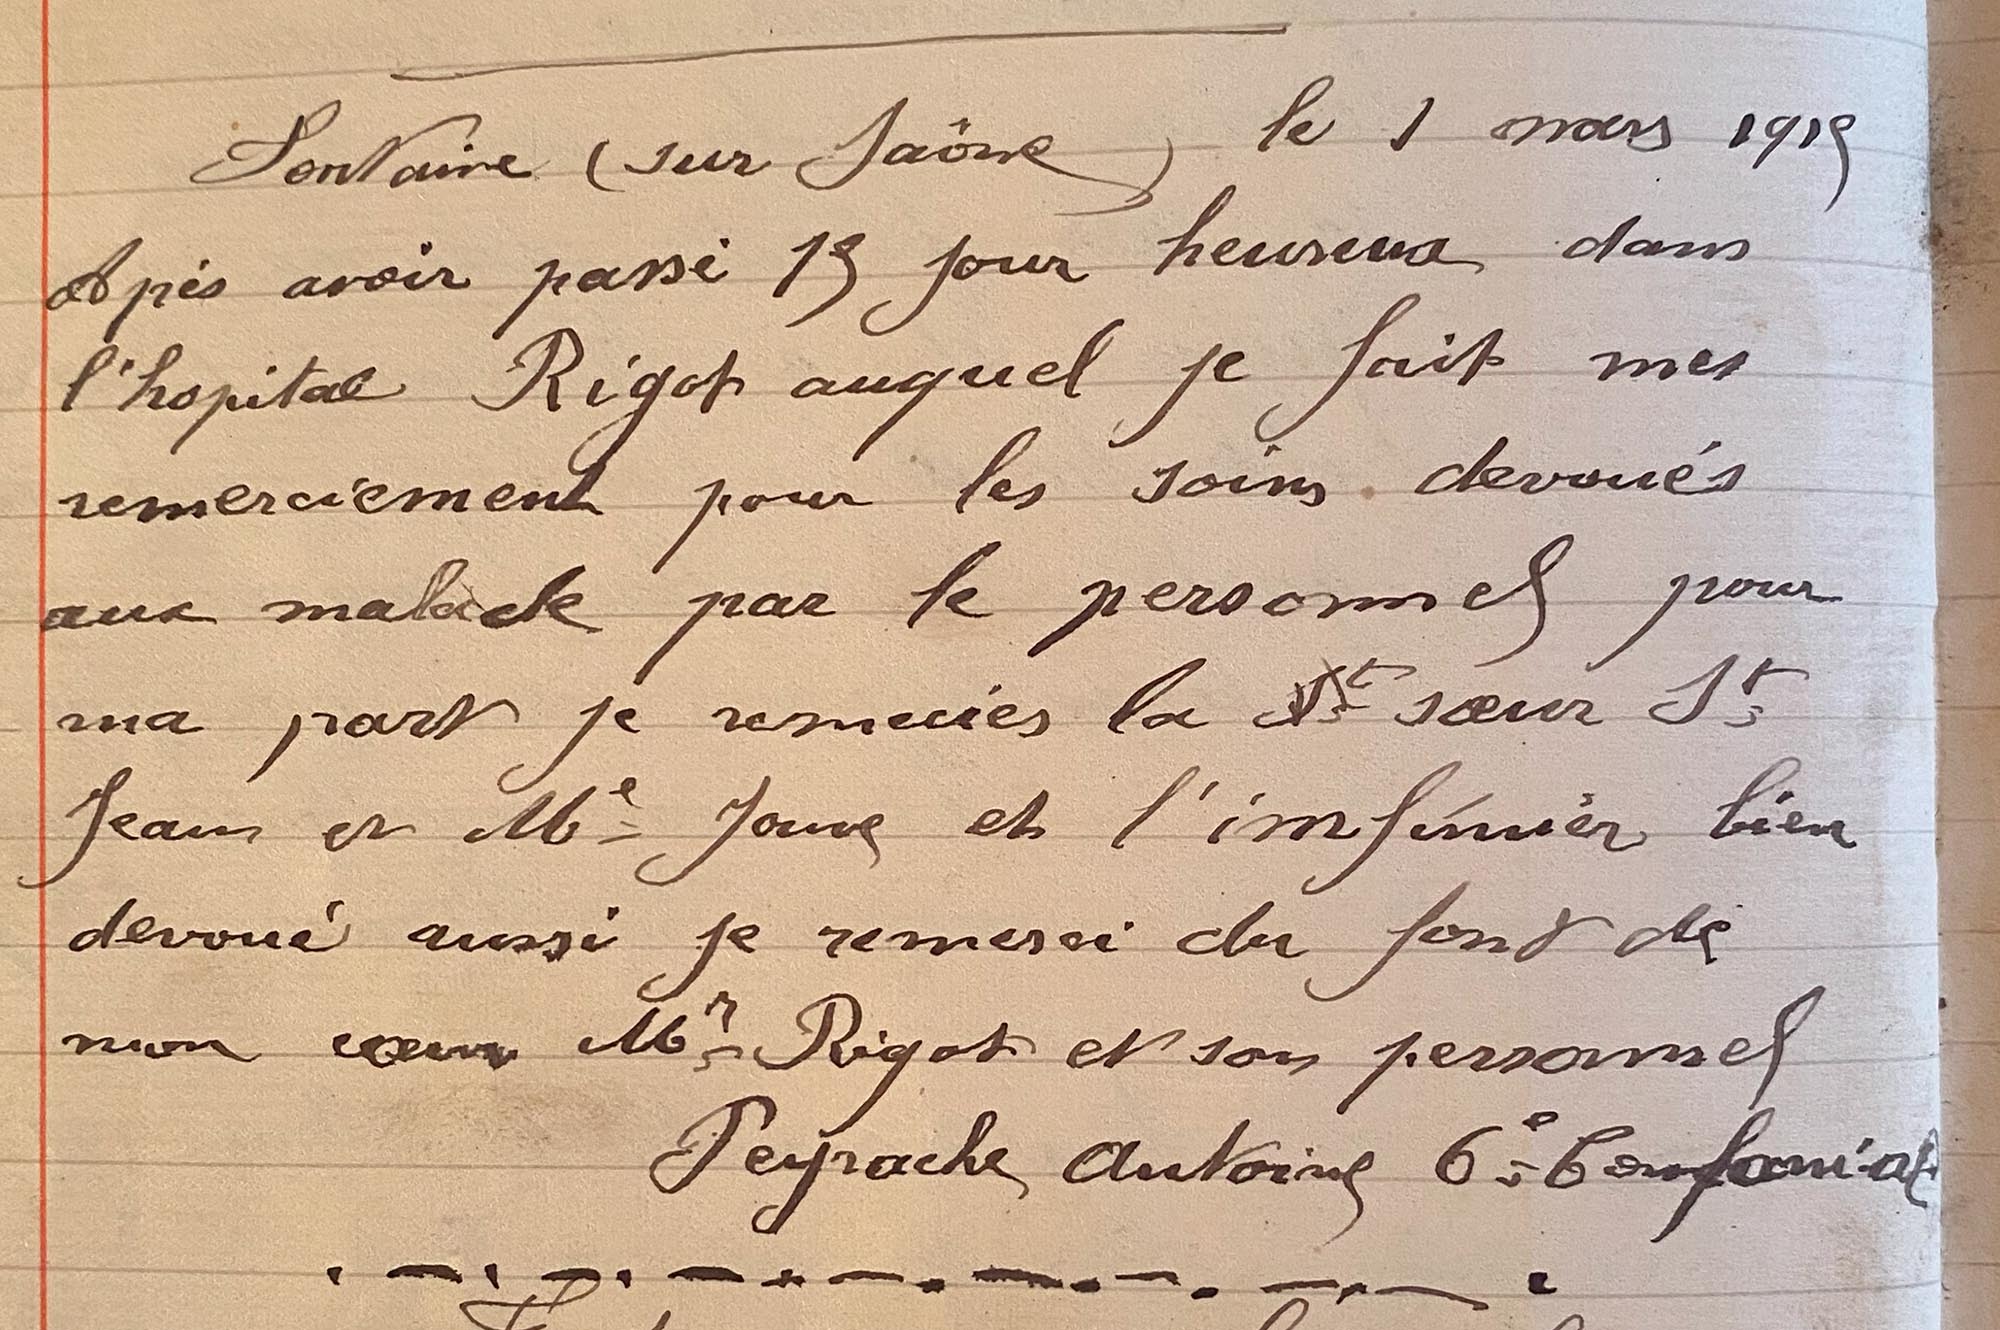 Fontaine (sur Saône) le 1 mars 1915
Apés avoir passé 15 jour heureux dans
l'hopital Rigot auquel je fait mes
remerciement pour les soins devoués
aux malade par le personnel pour
ma part je remecies la sœur St
Jean et Me Jouve et l'imfirmier bien
devoué aussi je remerci du font de
mon cœur Mr Rigot et son personnel
Peyrache Antoine 6e Colonial